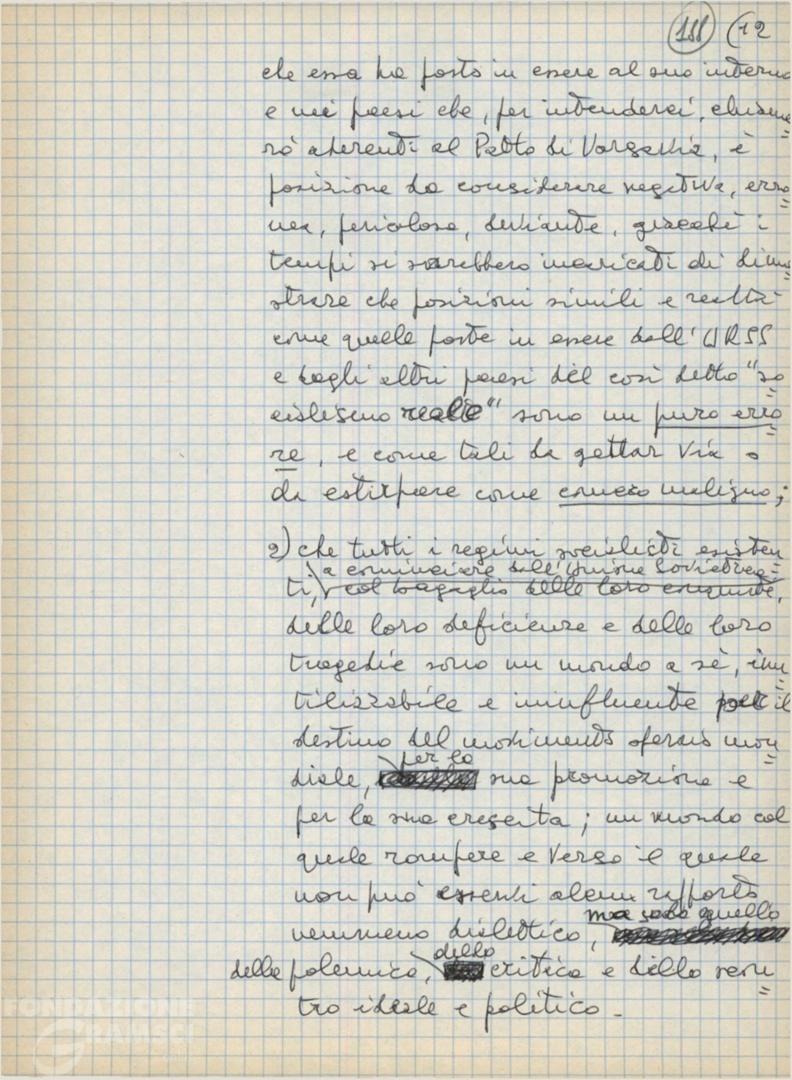 188 (12
che essa ha posto in essere al suo interno
e nei paesi che, per intenderci, chiame=
rò aderenti al Patto di Varsavia, è
posizione da considerare negativa, erro=
nea, pericolosa, deviante, giacché i
tempi si sarebbero incaricati di dimo=
strare che posizioni simili e realtà
come quelle poste in essere dall'URSS
e dagli altri paesi del così detto "so=
cialismo reale" sono un puro erro=
re, e come tali da gettar via o
da estirpare come cancro maligno;
2) che tutti i regimi socialisti esisten
a cominciare dall'Unione Sovietica=
ti, col bagaglio delle loro conquiste,
delle loro deficienze e delle loro
tragedie sono un mondo a sè, inu=
tilizzabile e ininfluente per il
destino del movimento operaio mon=
per la
diale, sua promozione e
per la sua crescita; un mondo col
quale rompere e verso il quale
non può esservi alcun rapporto
nemmeno dialettico, ma solo quello
della polemica, della critica e dello scon=
tro ideale e politico.
FONDAZIONE
GRAMSCI